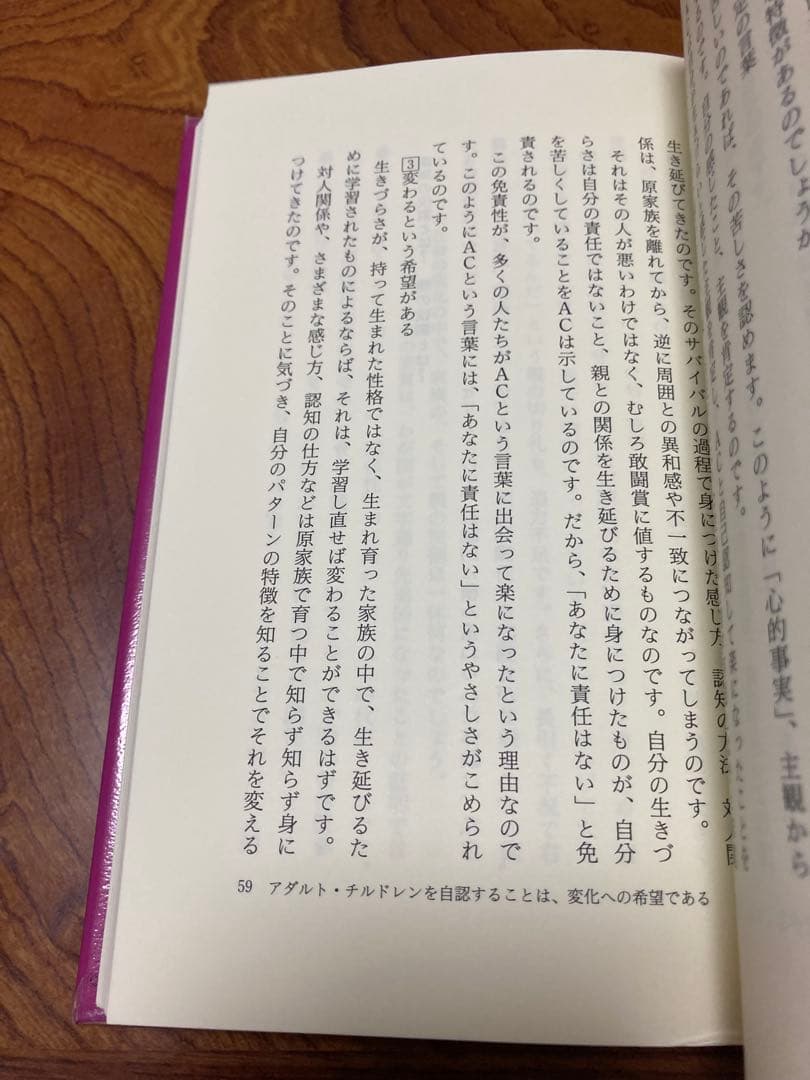 特徴があるのでしょうか
定の言葉
しいのであれば、その苦しさを認めます。このように「心的事実」、主観から
主観を肯定するのです。
生き延びてきたのです。そのサバイバルの過程で身につけた感じ方、認知の方法、対人関
係は、原家族を離れてから、逆に周囲との異和感や不一致につながってしまうのです。
それはその人が悪いわけではなく、むしろ敢闘賞に値するものなのです。自分の生きづ
らさは自分の責任ではないこと、親との関係を生き延びるために身につけたものが、自分
を苦しくしていることをACは示しているのです。だから、「あなたに責任はない」と免
責されるのです。
この免責性が、多くの人たちがACという言葉に出会って楽になったという理由なので
す。このようにACという言葉には、「あなたに責任はない」というやさしさがこめられ
ているのです。
3 変わるという希望がある
生きづらさが、持って生まれた性格ではなく、生まれ育った家族の中で、生き延びるた
めに学習されたものによるならば、それは、学習し直せば変わることができるはずです。
対人関係や、さまざまな感じ方、認知の仕方などは原家族で育つ中で知らず知らず身に
つけてきたのです。そのことに気づき、自分のパターンの特徴を知ることでそれを変える
59 アダルト・チルドレンを自認することは、変化への希望である